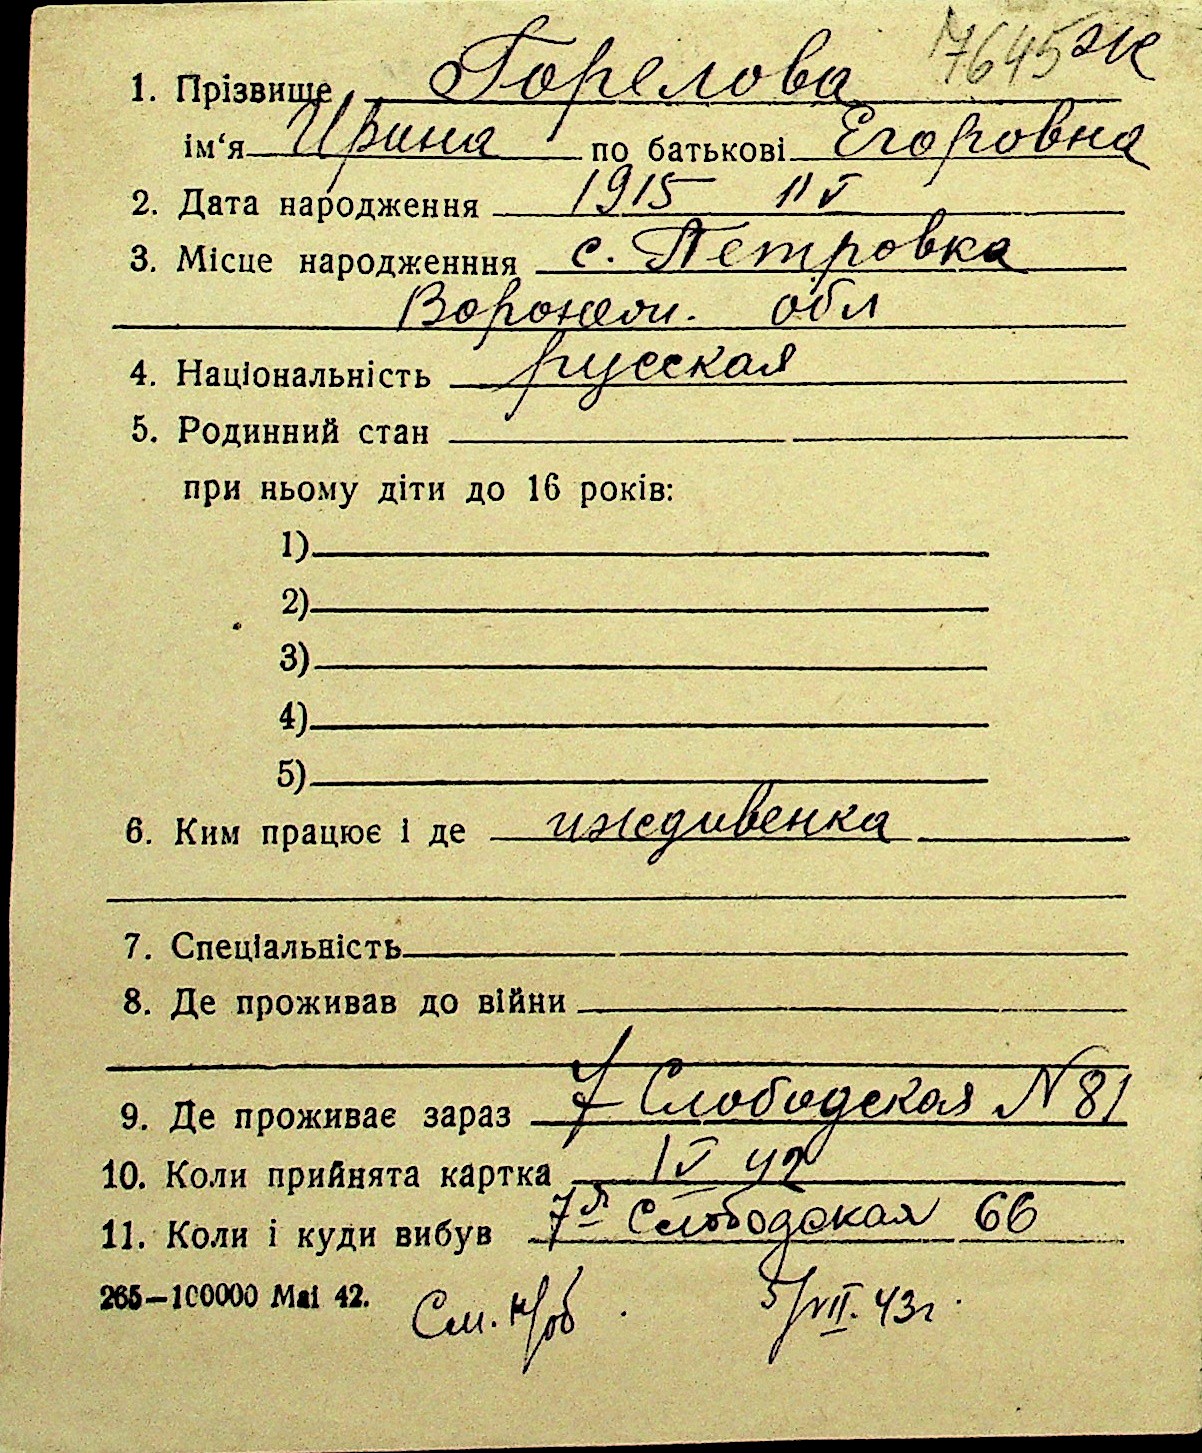 7645 ж
1. Прізвище Горелова
ім‘я Ирина по батькові Егоровна
2. Дата народження 1915 11 V
3. Місце народженння с. Петровка
Воронеж. обл
4. Національність русская
5. Родинний стан
при ньому діти до 16 років:
1)
2)
3)
4)
5)
6. Ким працює і де иждивенка
7. Спеціальність
8. Де проживав до війни
9. Де проживає зараз 7 Слободская N 81
10. Коли прийнята картка 1 V 42
11. Коли і куди вибув 7я Слободская 66
265—100000 Mai 42.
См. н/об. 5/VII. 43г.